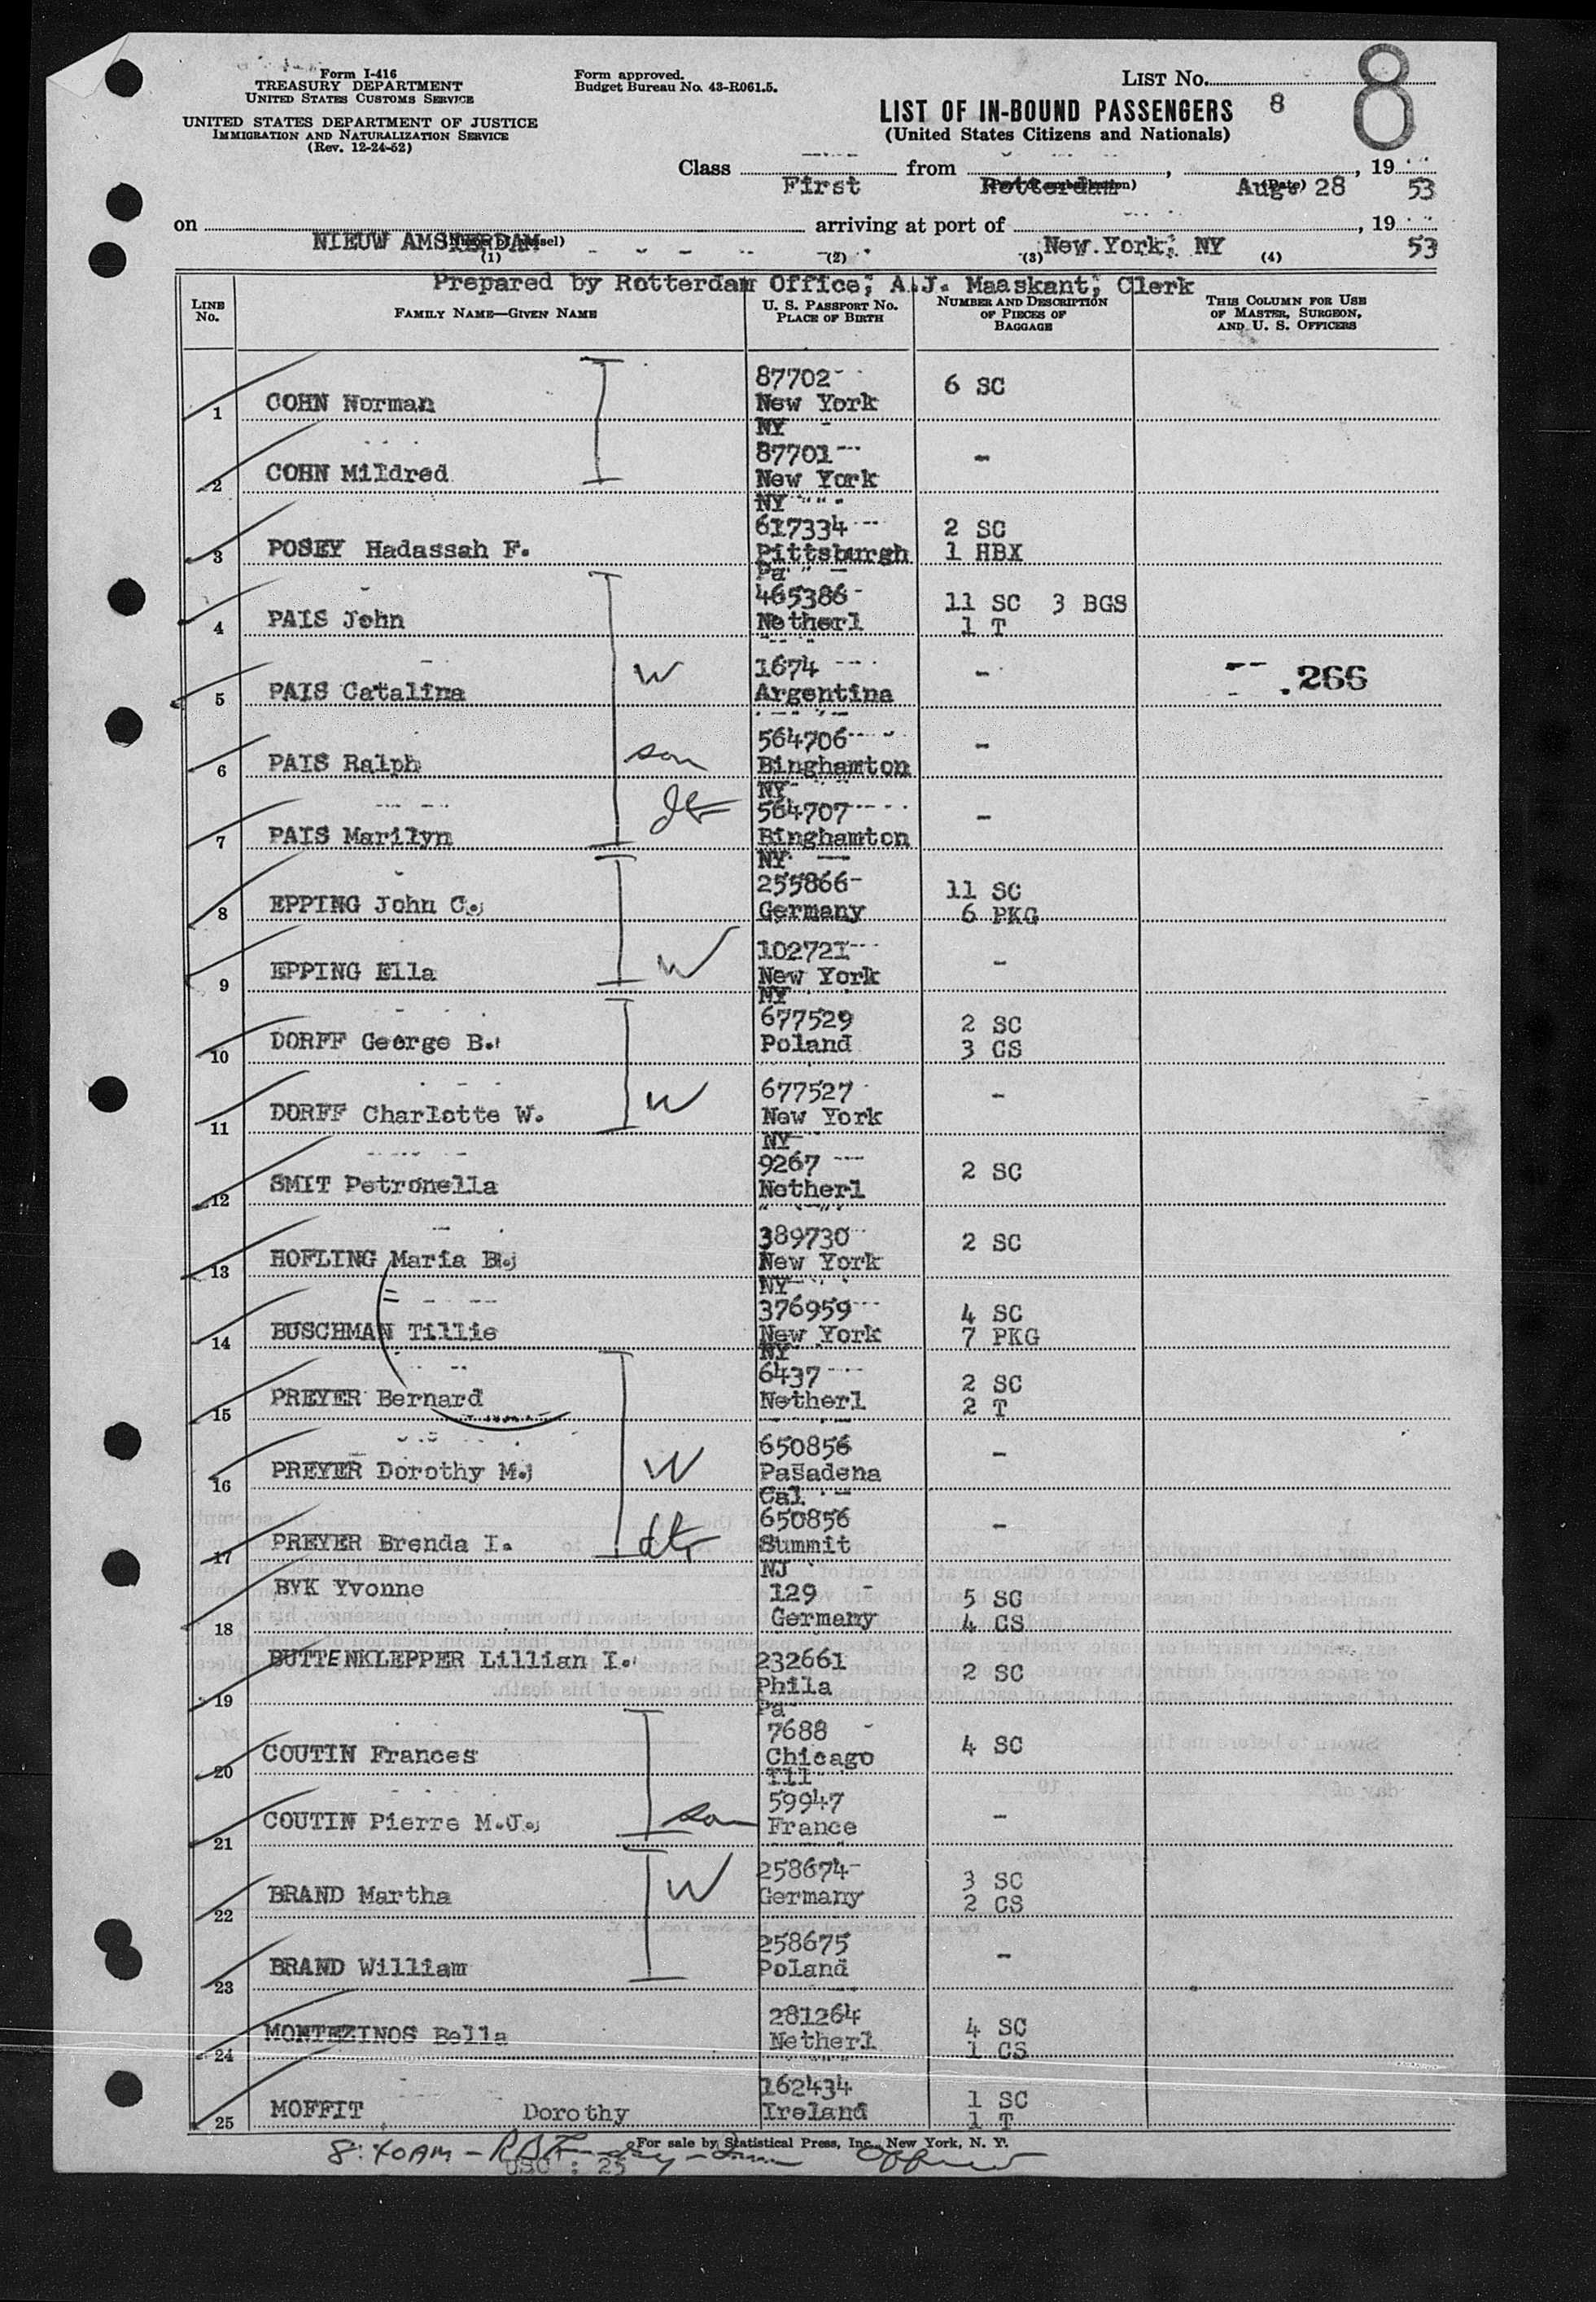 Form I-416
TREASURY DEPARTMENT
UNITED STATES CUSTOMS SERVICE
UNITED STATES DEPARTMENT OF JUSTICE
IMMIGRATION AND NATURALIZATION SERVICE
(Rev. 12-24-52)
Form approved.
Budget Bureau No. 43-R061.5.
LIST NO. 8
LIST OF IN-BOUND PASSENGERS 8
(United States Citizens and Nationals)
Class First from Rotterdam, Aug. 28, 19 53
on NIEUW AMSTERDAM arriving at port of New York, NY, 19 53
(1) (2) (3) (4)
Prepared by Rotterdam Office; A.J. Maaskant; Clerk
LINE NO. FAMILY NAME—GIVEN NAME U. S. PASSPORT NO. PLACE OF BIRTH NUMBER AND DESCRIPTION OF PIECES OF BAGGAGE THIS COLUMN FOR USE OF MASTER, SURGEON, AND U. S. OFFICERS
1 COHN Norman 87702 New York NY 6 SC
2 COHN Mildred 87701 New York NY -
3 POSEY Hadassah F. 617334 Pittsburgh Pa 2 SC 1 HBX
4 PAIS John 465386 Netherl 11 SC 3 BGS 1 T
5 PAIS Catalina W 1674 Argentina - .266
6 PAIS Ralph son 564706 Binghamton NY -
7 PAIS Marilyn dtr 564707 Binghamton NY -
8 EPPING John C. 255866 Germany 11 SC 6 PKG
9 EPPING Ella W 102721 New York NY -
10 DORFF George B. 677529 Poland 2 SC 3 CS
11 DORFF Charlotte W. W 677527 New York NY -
12 SMIT Petronella 9267 Netherl 2 SC
13 HOFLING Maria B. 389730 New York NY 2 SC
14 BUSCHMAN Tillie 376959 New York NY 4 SC 7 PKG
15 PREYER Bernard 6437 Netherl 2 SC 2 T
16 PREYER Dorothy M. W 650856 Pasadena Cal -
17 PREYER Brenda I. dtr 650856 Summit NJ -
18 BYK Yvonne 129 Germany 5 SC 4 CS
19 BUTTENKLEPPER Lillian I. 232661 Phila Pa 2 SC
20 COUTIN Frances 7688 Chicago Ill 4 SC
21 COUTIN Pierre M.J. son 59947 France -
22 BRAND Martha W 258674 Germany 3 SC 2 CS
23 BRAND William 258675 Poland -
24 MONTEZINOS Bella 281264 Netherl 4 SC 1 CS
25 MOFFIT Dorothy 162434 Ireland 1 SC 1 T
For sale by Statistical Press, Inc., New York, N. Y.
8:40AM -
USC : 25